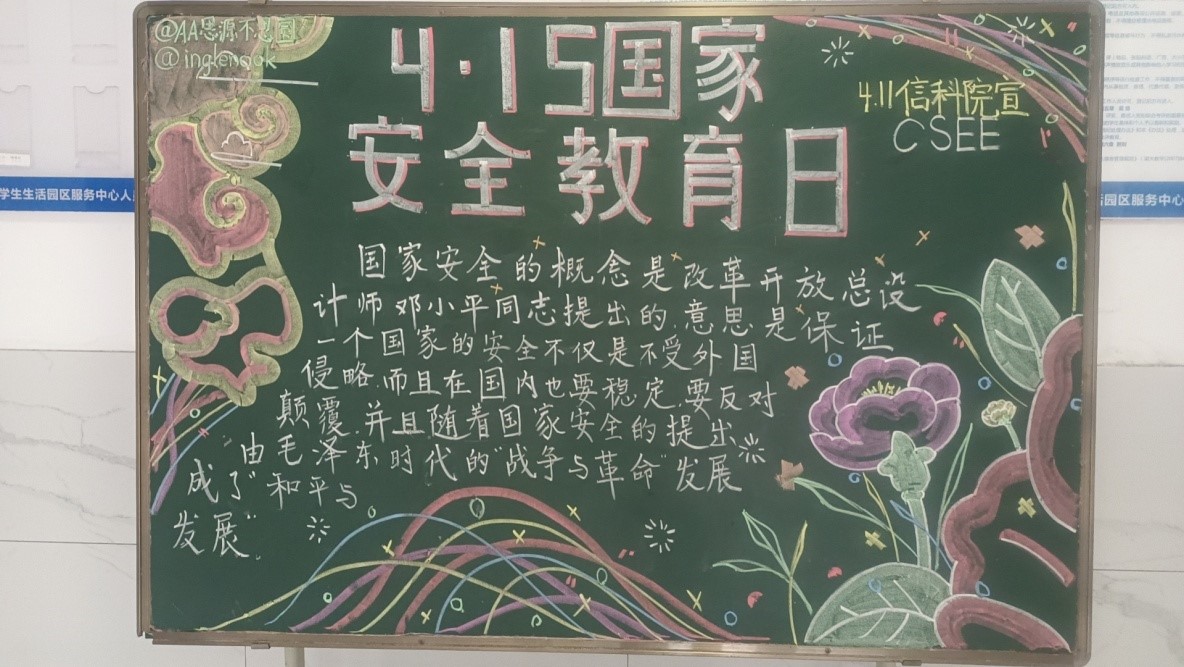 @AA思源不思圆
@inglenook
4·15国家
安全教育日
4.11信科院宣
CSEE
国家安全的概念是改革开放总设
计师邓小平同志提出的,意思是保证
一个国家的安全不仅是不受外国
侵略,而且在国内也要稳定,要反对
颠覆.并且随着国家安全的提出
由毛泽东时代的"战争与革命"发展
成了"和平与
发展".
学生生活园区服务中心人
园区服务中心